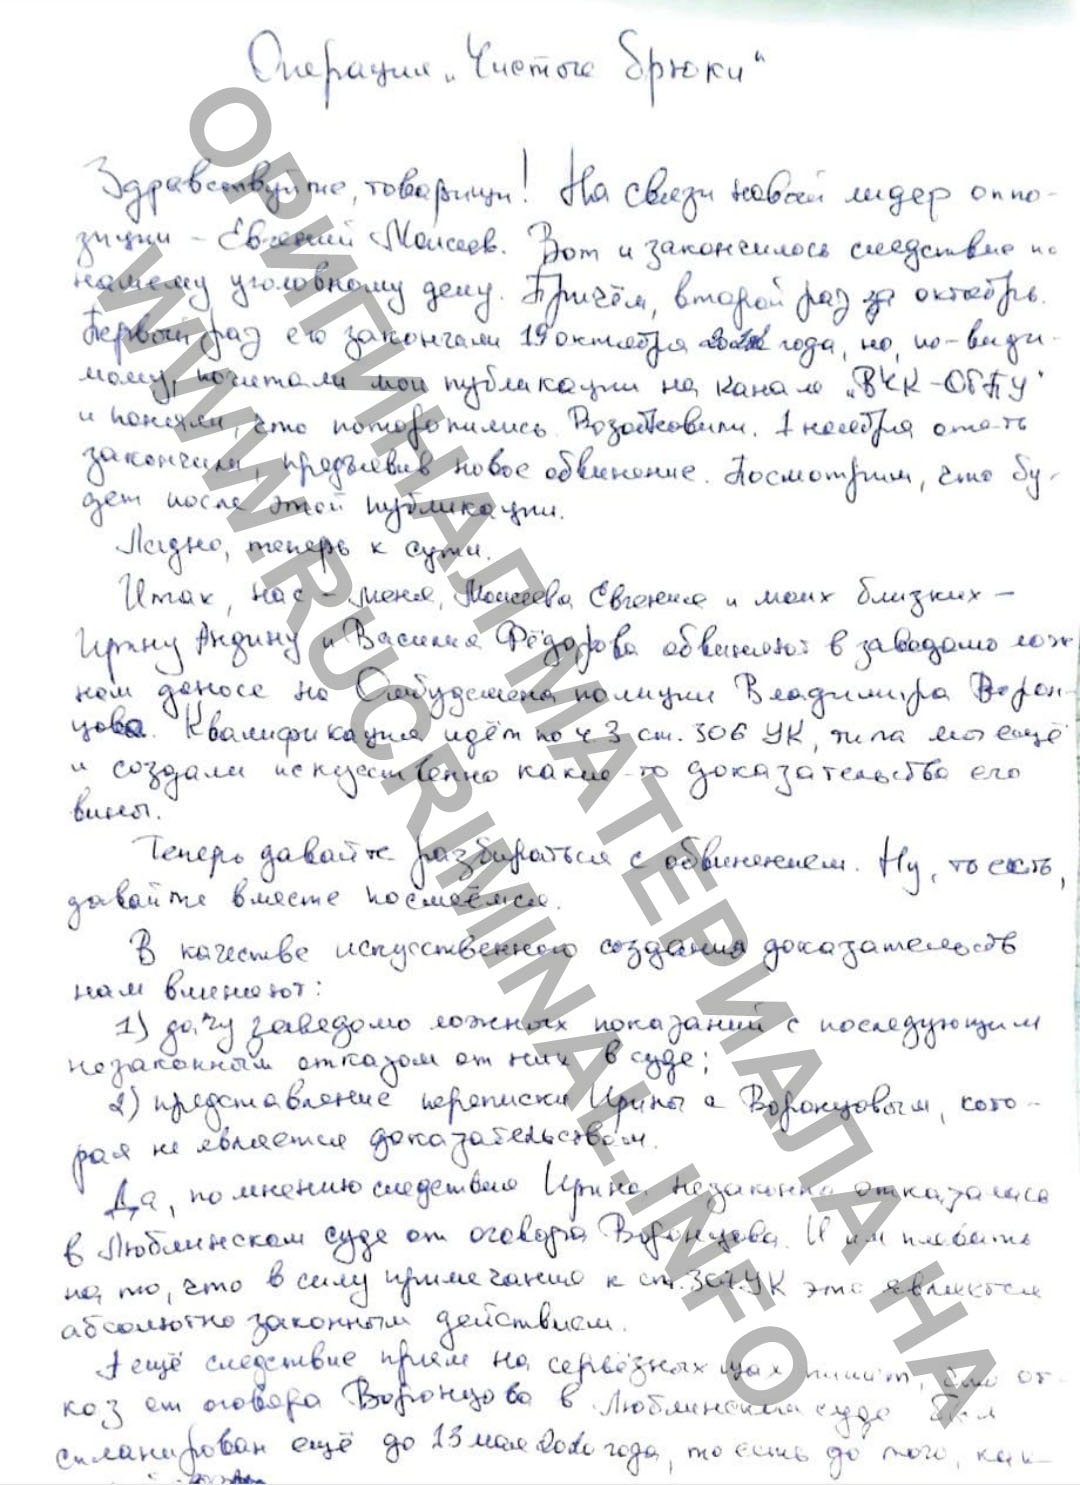 Операция „Чистые брюки“
Здравствуйте, товарищи! На связи новый лидер оппо-
зиции – Евгений Моисеев. Вот и закончилось следствие по
нашему уголовному делу. Причём, второй раз за октябрь.
Первый раз его закончили 19 октября года, но, по-види-
мому, почитали мои публикации на канале „ВЧК-ОГПУ“
и поняли, что поторопились. Возобновили. 1 ноября опять
закончили, предъявив новое обвинение. Посмотрим, что бу-
дет после этой публикации.
Ладно, теперь к сути.
Итак, нас – меня, Моисеева Евгения и моих близких –
Ирину Андину и Василия Фёдорова обвиняют в заведомо лож
ном доносе на Омбудсмена полиции Владимира Ворон-
цова. Квалификация идёт по ч.3 ст. 306 УК, типа мы ещё
и создали искусственно какие-то доказательства его
вины.
Теперь давайте разбираться с обвинением. Ну, то есть,
давайте вместе посмеёмся.
В качестве искусственного создания доказательств
нам вменяют:
1) дачу заведомо ложных показаний с последующим
незаконным отказом от них в суде;
2) представление переписки Ирины с Воронцовым, кото-
рая не является доказательством.
Да, по мнению следствия Ирина незаконно отказалась
в Люблинском суде от оговора Воронцова. И им плевать
на то, что в силу примечания к ст.307 УК это является
абсолютно законным действием.
А ещё следствие прям на серьёзных щах пишет, что от-
каз от оговора Воронцова в Люблинском суде был
спланирован ещё до 13 мая 2020 года, то есть до того, как
ОРИГИНАЛ МАТЕРИАЛА НА
WWW.RUCRIMINAL.INFO